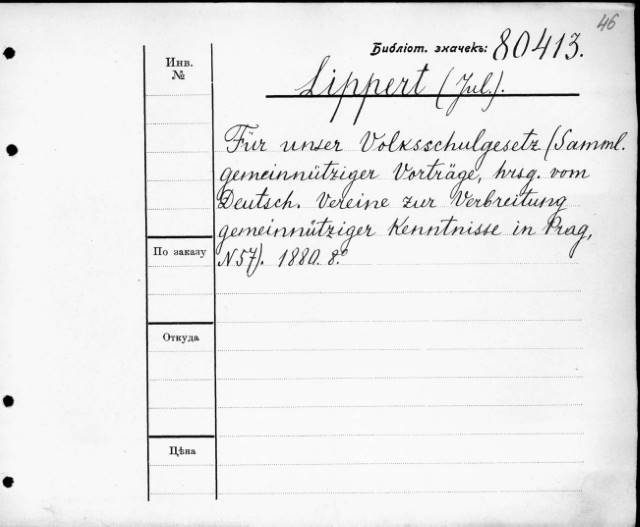 46
Библіот. значекъ: 80413.
Инв.
№
Lippert (Jul.).
Für unser Volksschulgesetz (Samml.
gemeinnütziger Vorträge, hrsg. vom
Deutsch. Vereine zur Verbreitung
gemeinnütziger Kenntnisse in Prag,
По заказу
N 57). 1880. 8º
Откуда
Цѣна